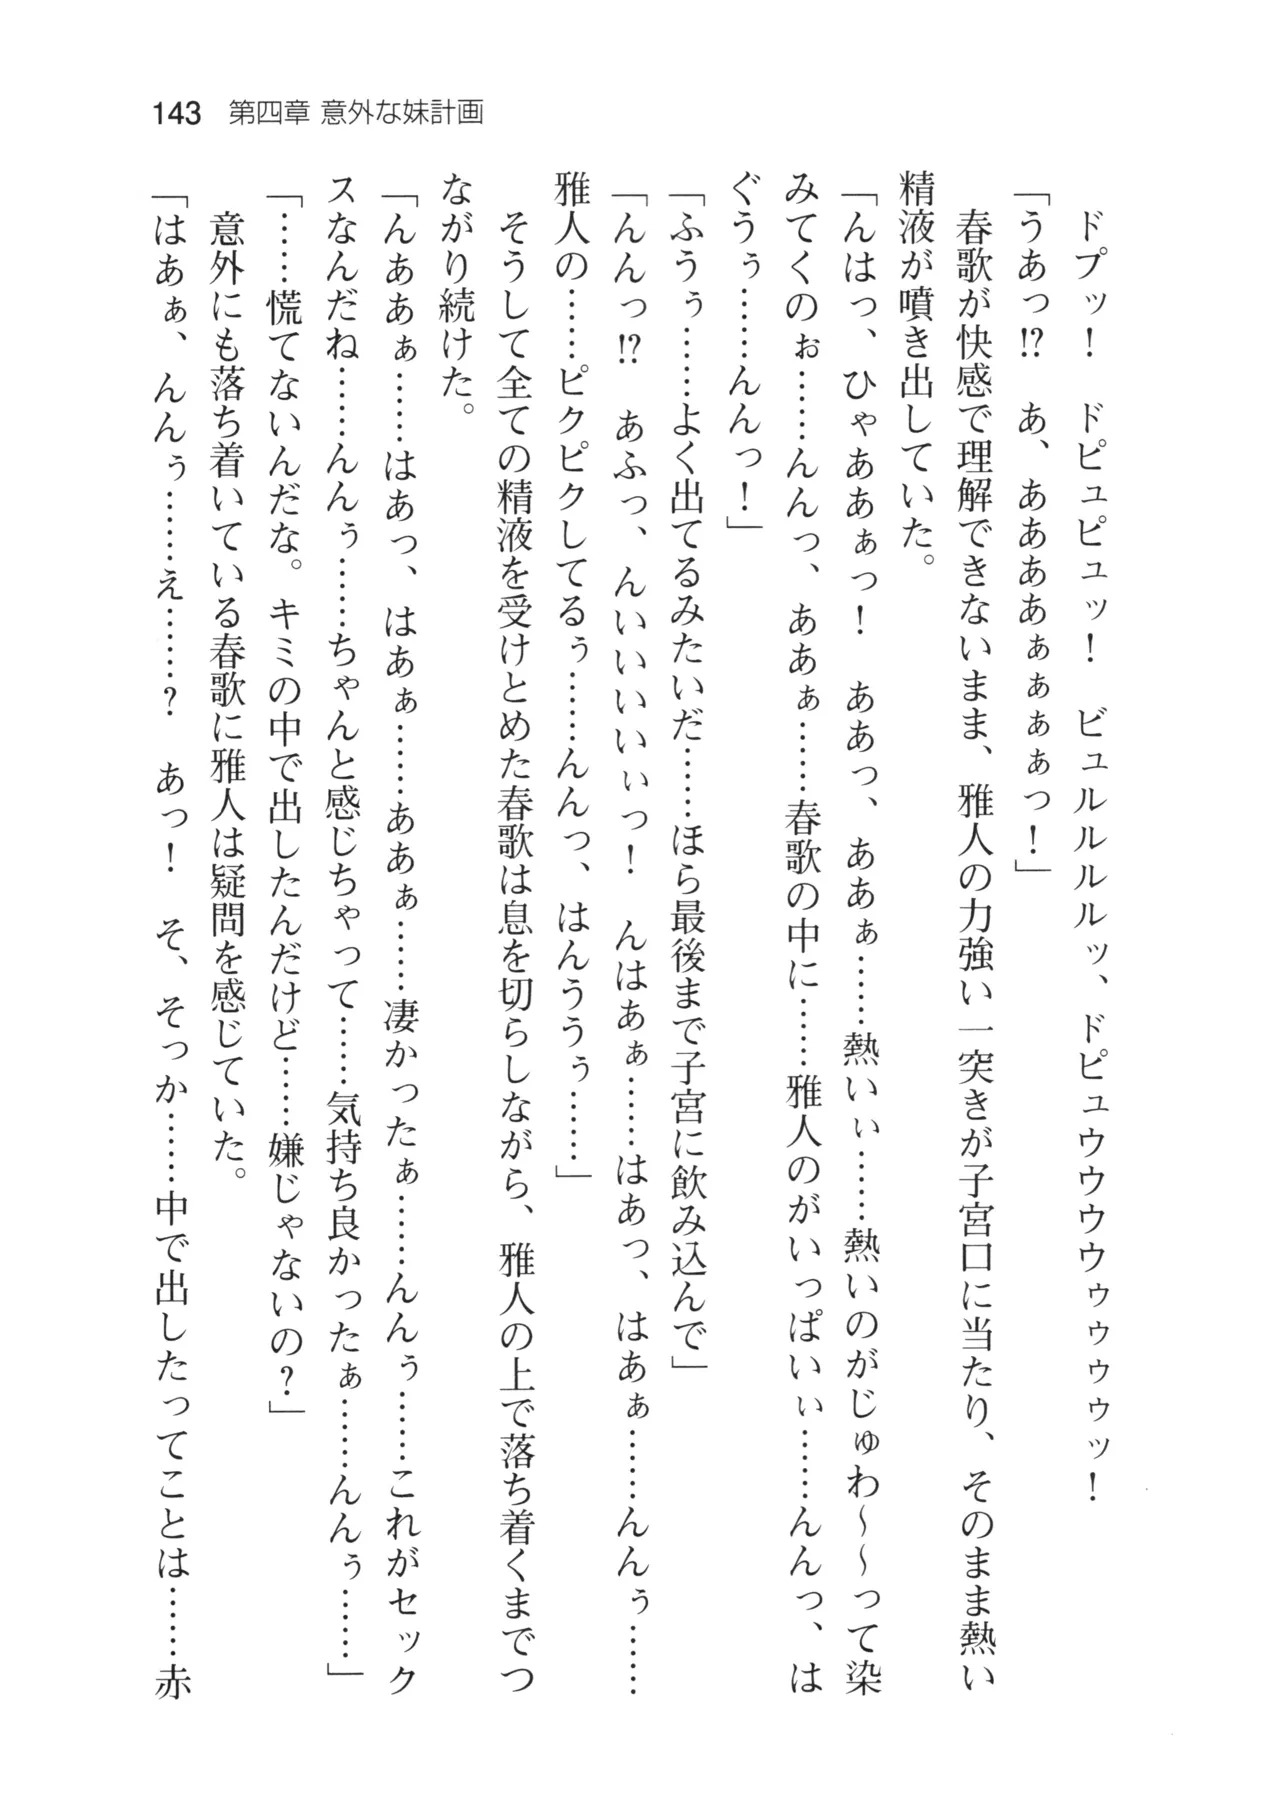 143 第四章 意外な妹計画
ドプッ！ ドピュピュッ！ ビュルルルルッ、ドピュウウウウゥゥゥゥッ！
「うあっ!? あ、ああああぁぁぁぁっ！」
春歌が快感で理解できないまま、雅人の力強い一突きが子宮口に当たり、そのまま熱い
精液が噴き出していた。
「んはっ、ひゃああぁっ！ ああっ、ああぁ……熱いぃ……熱いのがじゅわ～～って染
みてくのぉ……んんっ、ああぁ……春歌の中に……雅人のがいっぱいぃ……んんっ、は
ぐうぅ……んんっ！」
「ふうぅ……よく出てるみたいだ……ほら最後まで子宮に飲み込んで」
「んんっ!? あふっ、んいいいいぃっ！ んはあぁ……はあっ、はあぁ……んんぅ……
雅人の……ピクピクしてるぅ……んんっ、はんううぅ……」
そうして全ての精液を受けとめた春歌は息を切らしながら、雅人の上で落ち着くまでつ
ながり続けた。
「んああぁ……はあっ、はあぁ……ああぁ……凄かったぁ……んんぅ……これがセック
スなんだね……んんぅ……ちゃんと感じちゃって……気持ち良かったぁ……んんぅ……」
「……慌てないんだな。キミの中で出したんだけど……嫌じゃないの？」
意外にも落ち着いている春歌に雅人は疑問を感じていた。
「はあぁ、んんぅ……え……？ あっ！ そ、そっか……中で出したってことは……赤